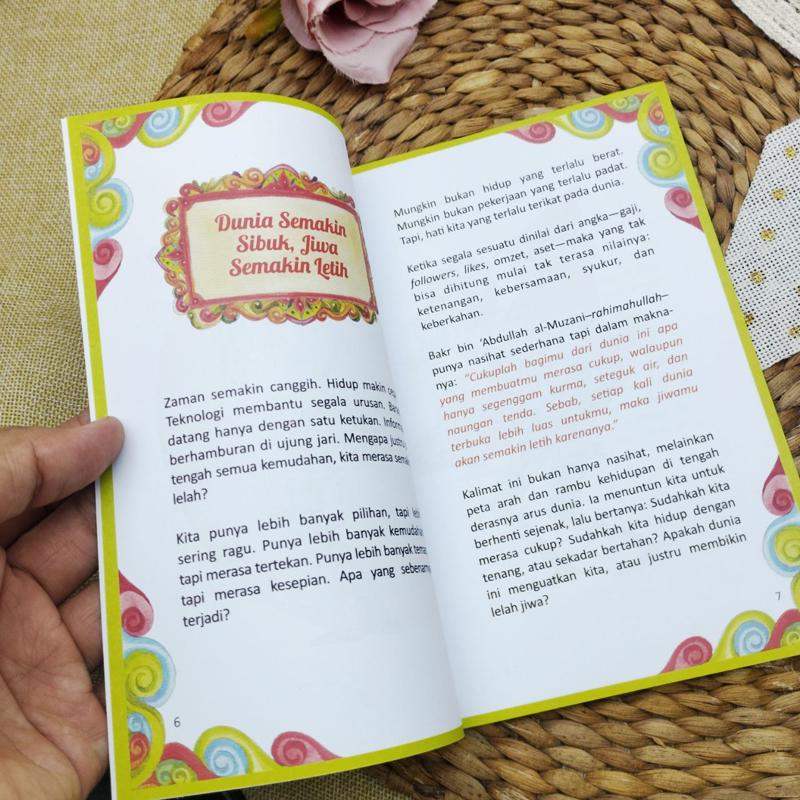 Dunia Semakin
Sibuk, Jiwa
Semakin Letih
Zaman semakin canggih. Hidup makin
Teknologi membantu segala urusan.
datang hanya dengan satu ketukan.
berhamburan di ujung jari. Mengapa
tengah semua kemudahan, kita merasa
lelah?
Kita punya lebih banyak pilihan, tapi
sering ragu. Punya lebih banyak
tapi merasa tertekan. Punya lebih banyak
tapi merasa kesepian. Apa yang
terjadi?
6
Mungkin bukan hidup yang terlalu berat.
Mungkin bukan pekerjaan yang terlalu padat.
Tapi, hati kita yang terlalu terikat pada dunia.
Ketika segala sesuatu dinilai dari angka—gaji,
followers, likes, omzet, aset—maka yang tak
bisa dihitung mulai tak terasa nilainya:
ketenangan, kebersamaan, syukur, dan
keberkahan.
Bakr bin ‘Abdullah al-Muzani–rahimahullah–
punya nasihat sederhana tapi dalam makna-
nya: “Cukuplah bagimu dari dunia ini apa
yang membuatmu merasa cukup, walaupun
hanya segenggam kurma, seteguk air, dan
naungan tenda. Sebab, setiap kali dunia
terbuka lebih luas untukmu, maka jiwamu
akan semakin letih karenanya.”
Kalimat ini bukan hanya nasihat, melainkan
peta arah dan rambu kehidupan di tengah
derasnya arus dunia. Ia menuntun kita untuk
berhenti sejenak, lalu bertanya: Sudahkah kita
merasa cukup? Sudahkah kita hidup dengan
tenang, atau sekadar bertahan? Apakah dunia
ini menguatkan kita, atau justru membikin
lelah jiwa?
7